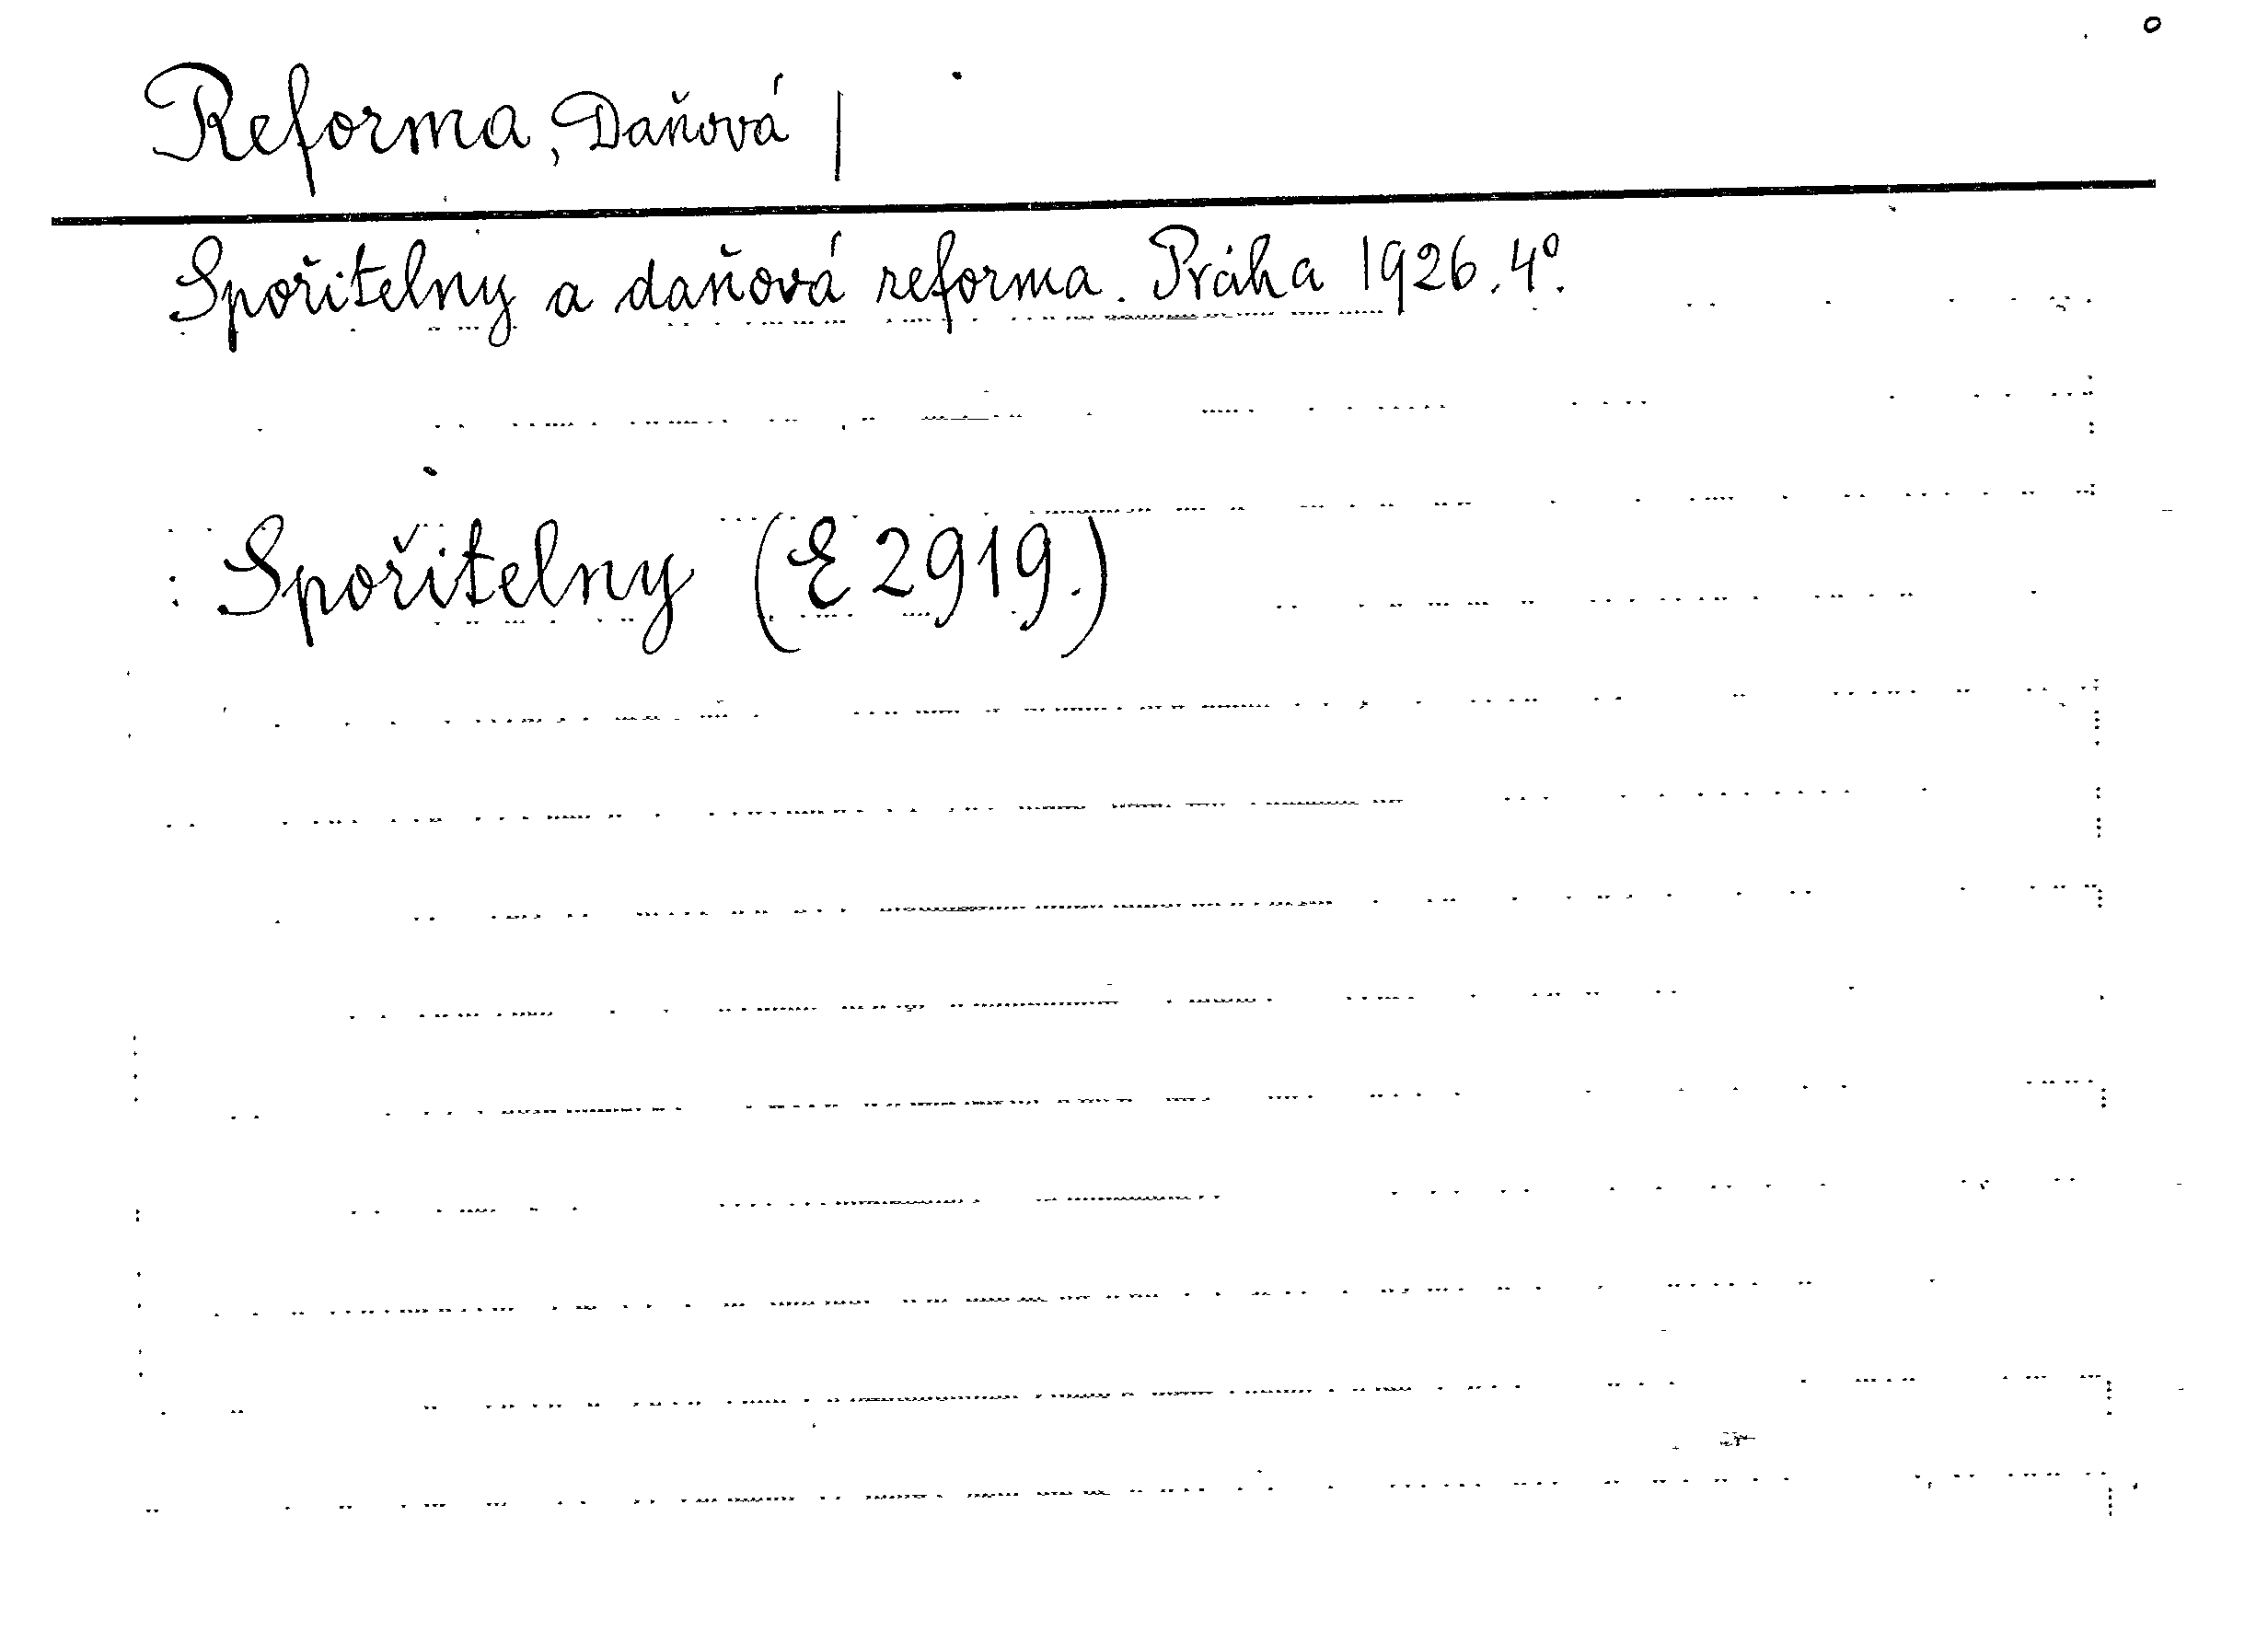 Reforma, Daňová |
Spořitelny a daňová reforma. Praha 1926. 4°.
Spořitelny (E 2919.)